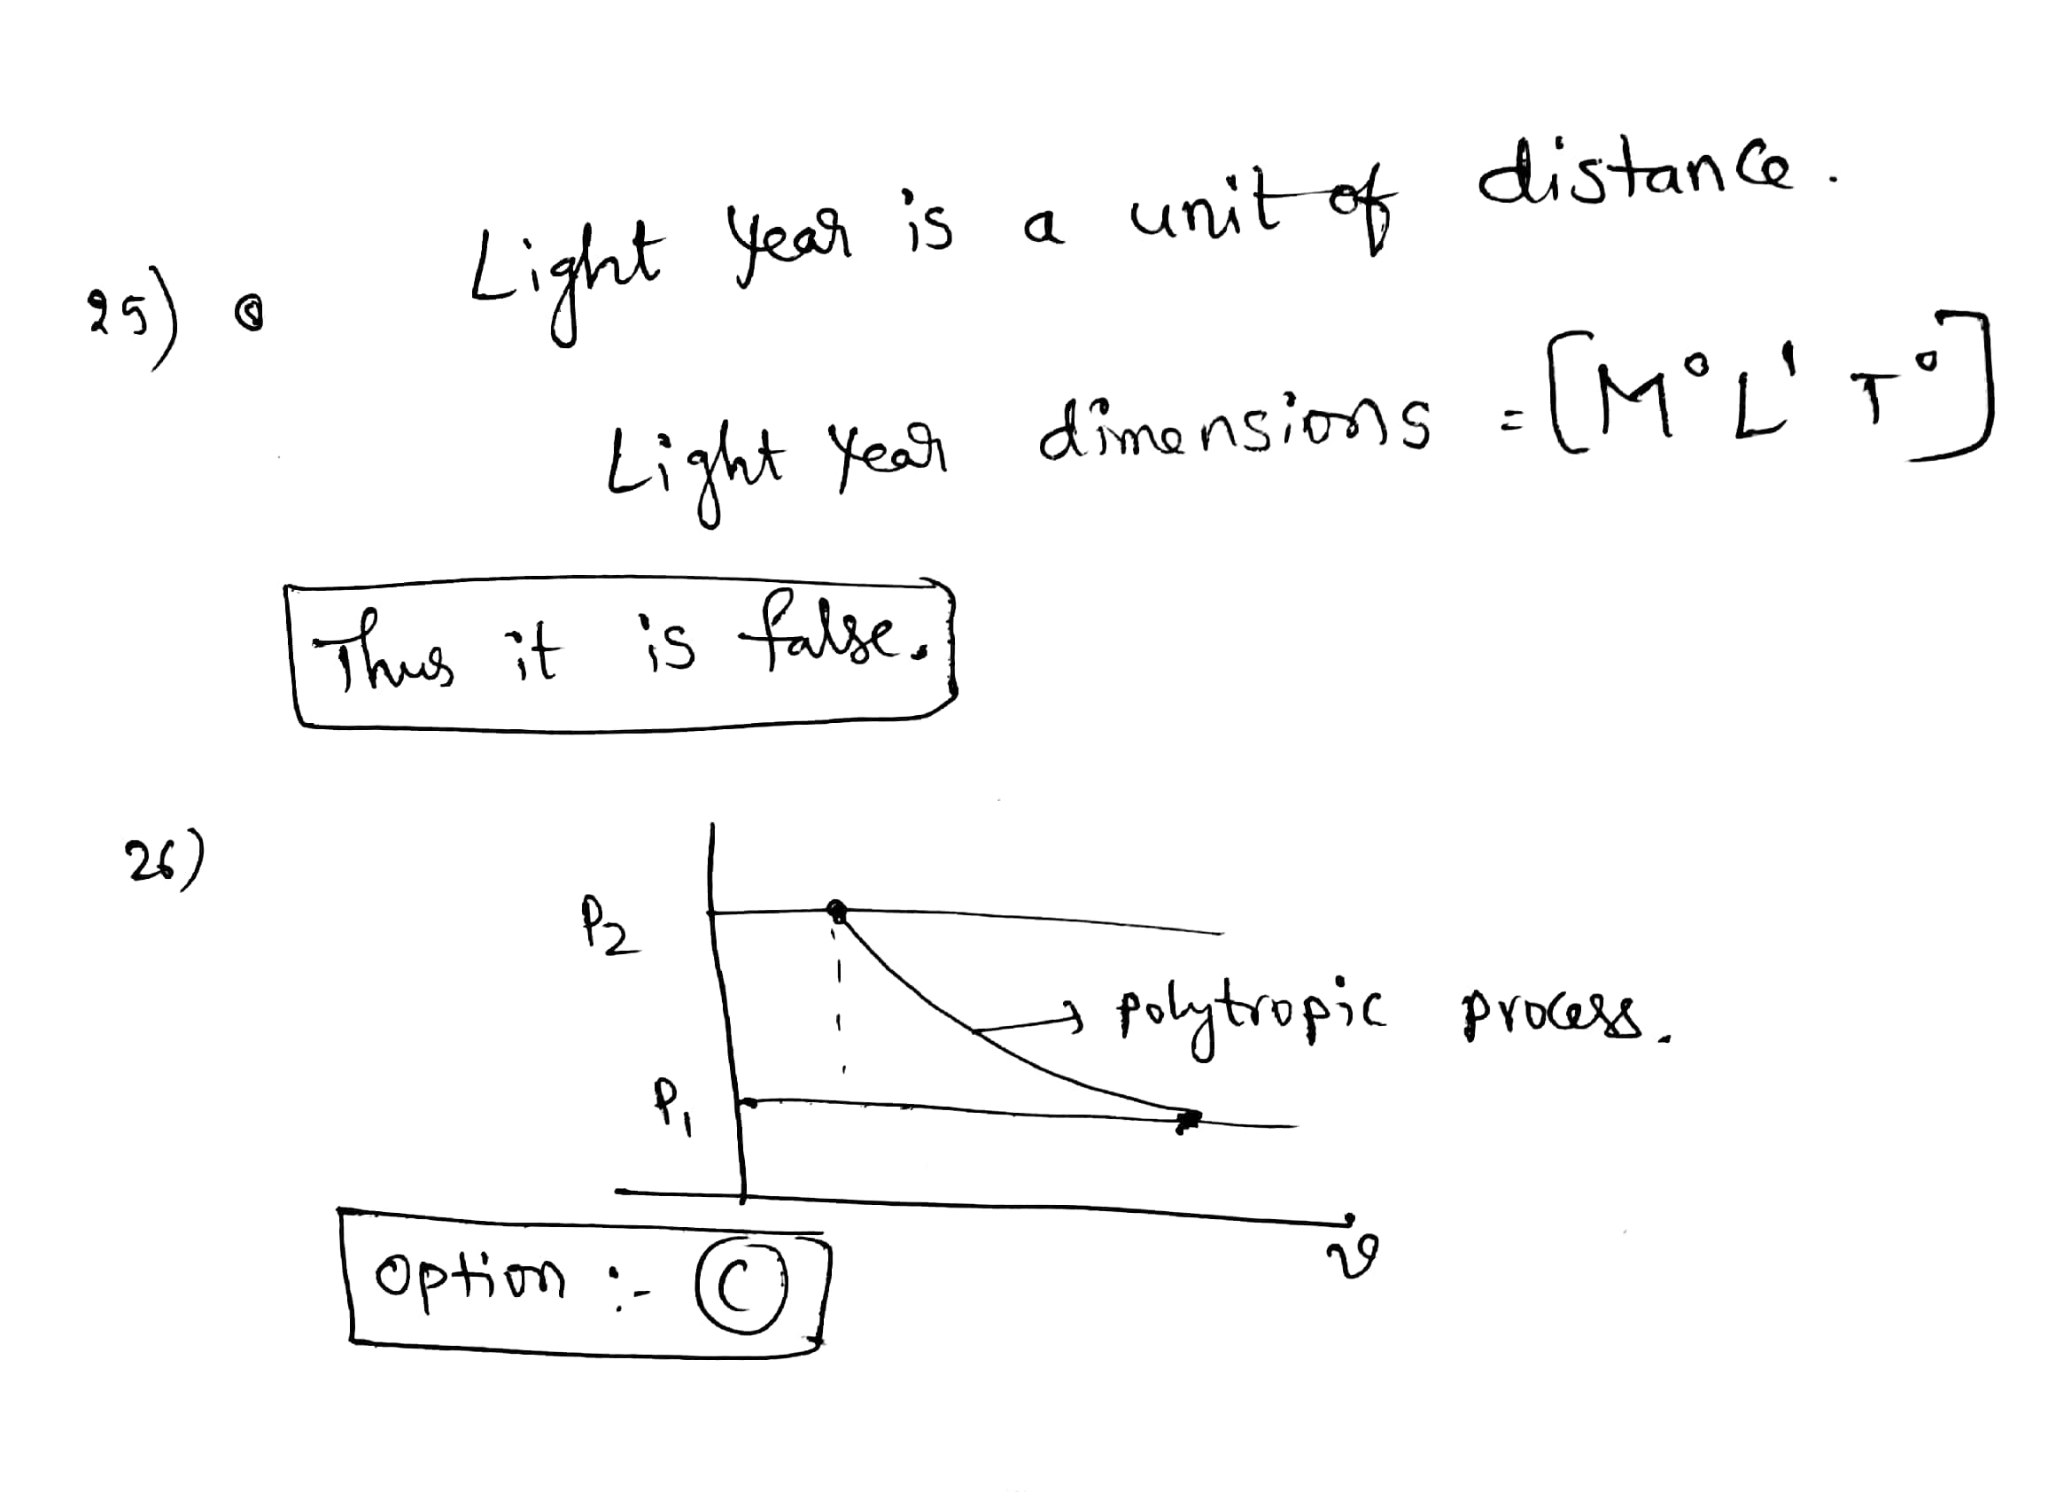 25) Light year is a unit of distance.
Light year dimensions = [M⁰ L¹ T⁰]
Thus it is false.
26)
P₂
polytropic process.
P₁
v
option :- C